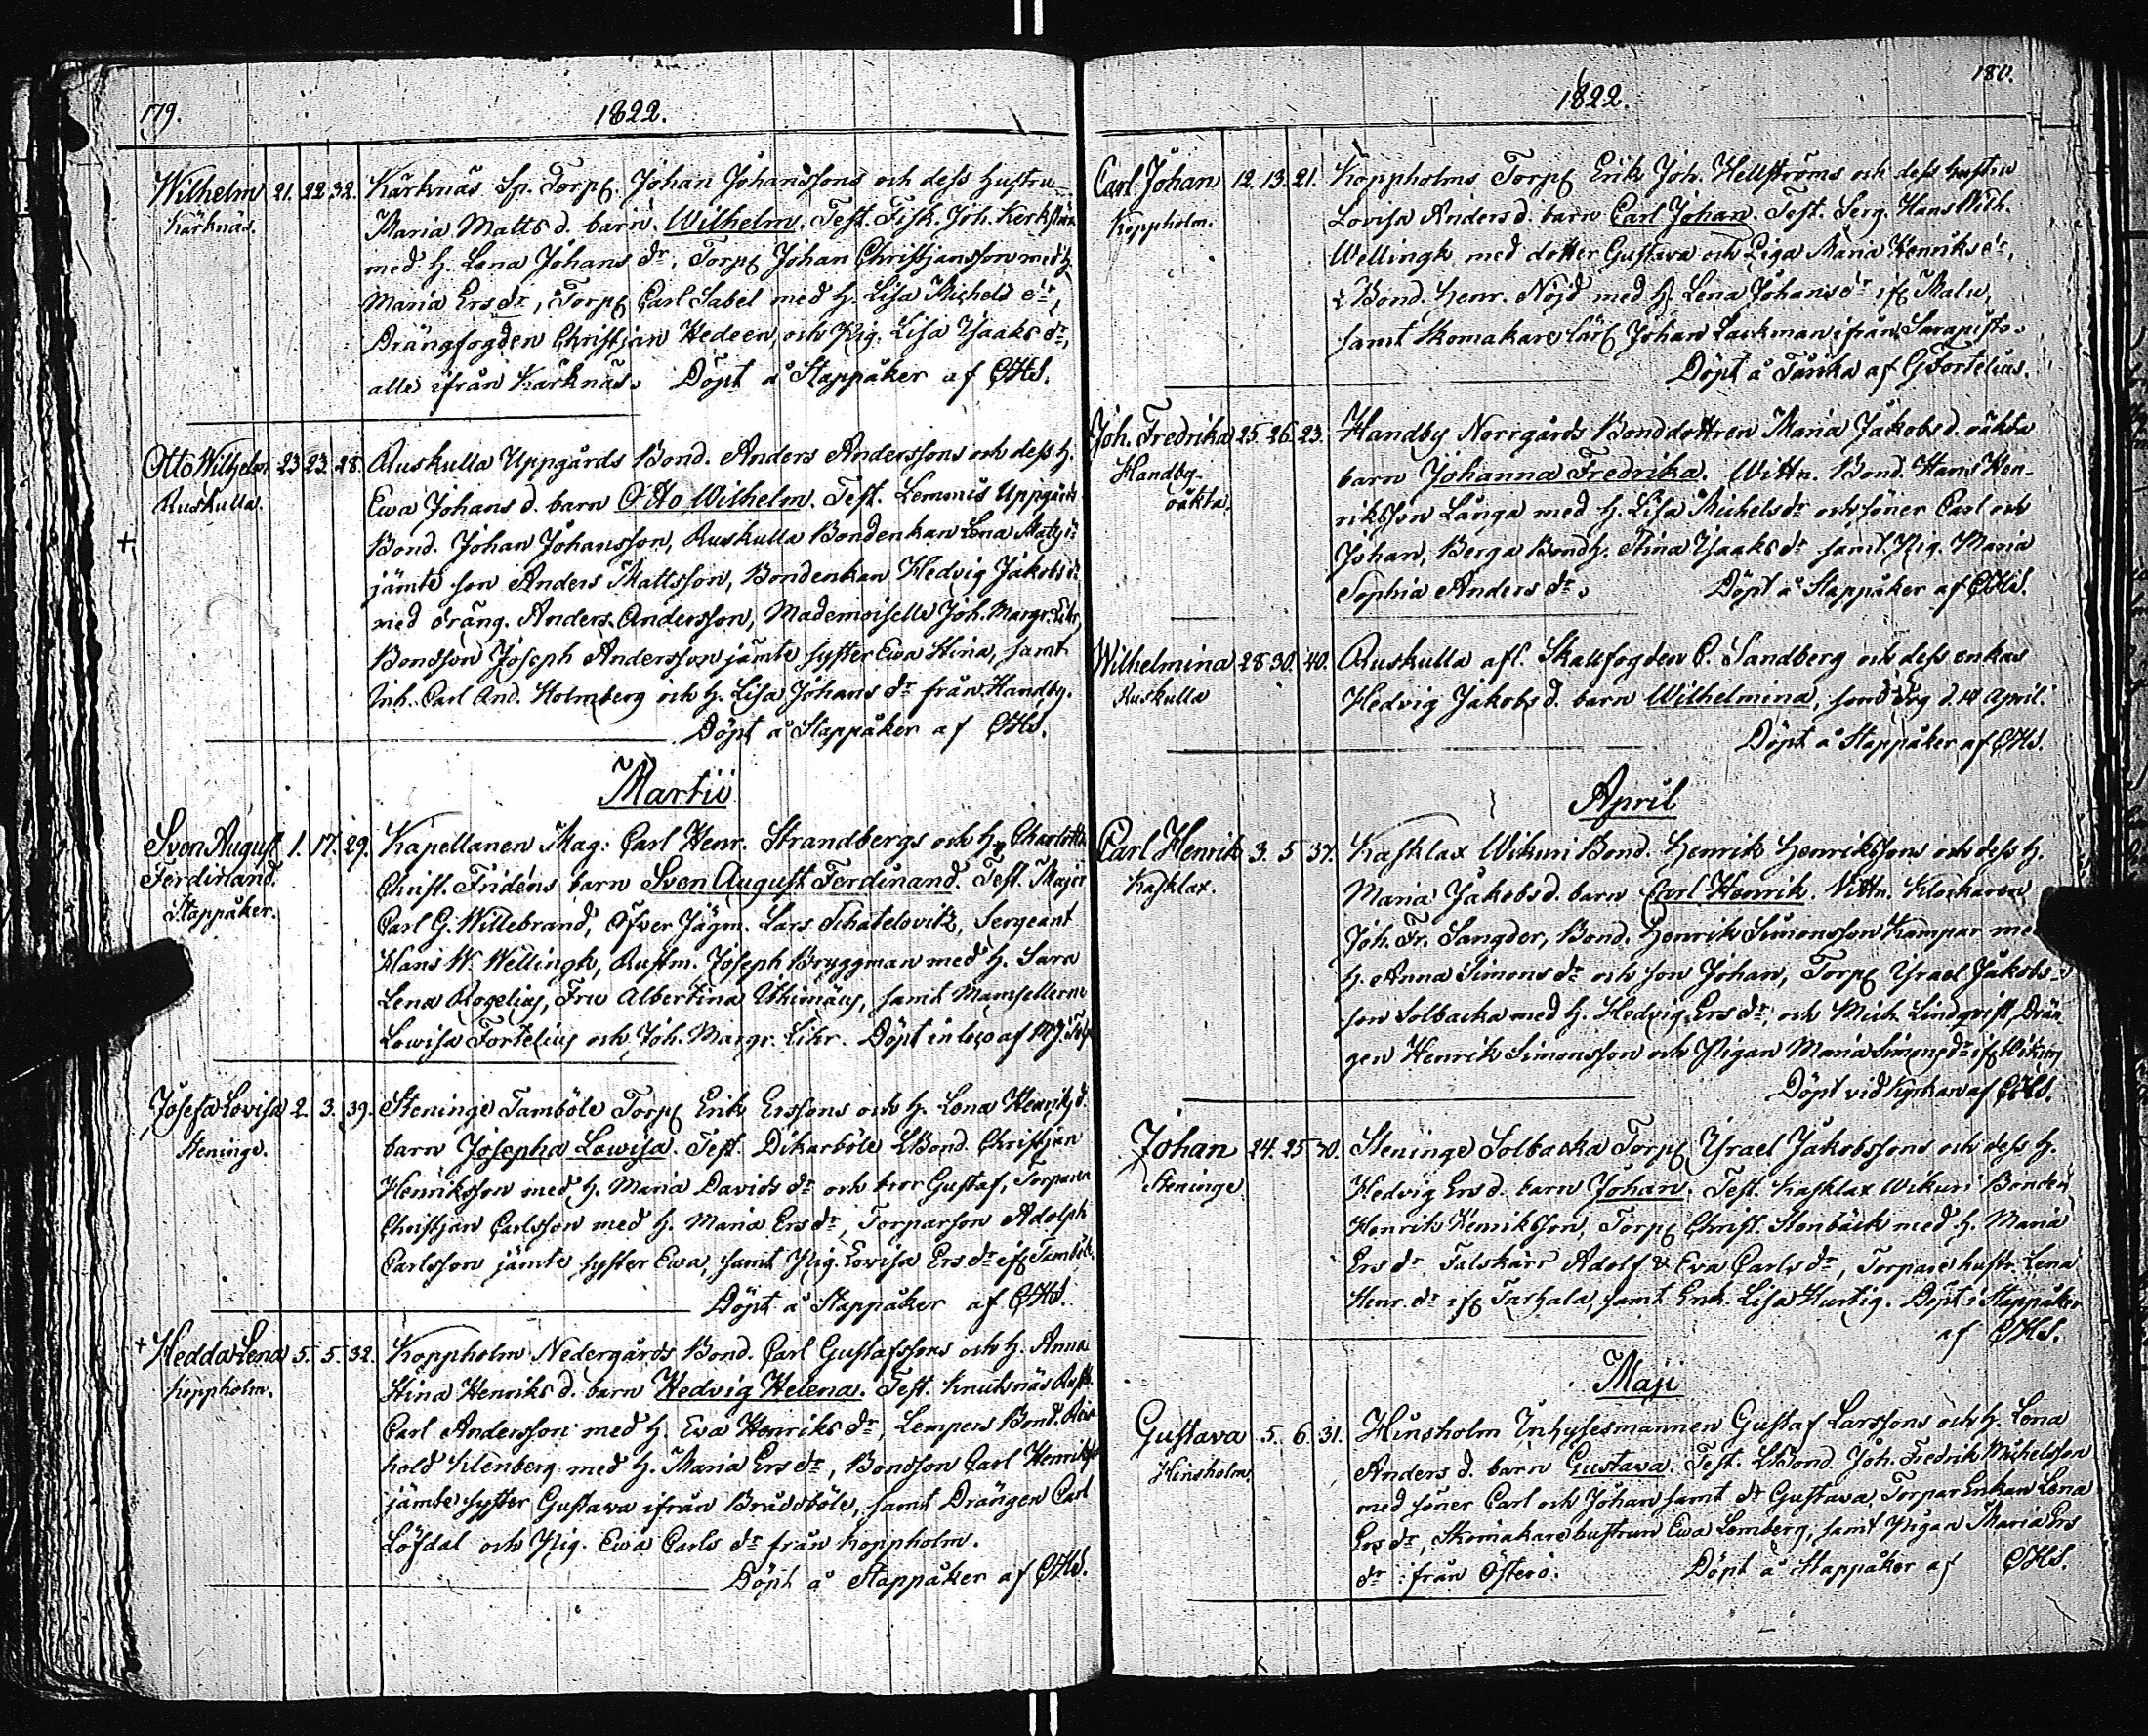 179.
1822.
Wilhelm 21. 22. 32. Kärknäs Sp. Torp. Johan Johanssons och dess hustru
Kärknäs. Maria Matts d. barn Wilhelm. Test. Fisk. Joh.
med H. Lena Johans dr, Torp. Johan Christjansson med H.
Maria Ers dr, Torp. Carl Sabel med H. Lisa Michels dr,
Drängfogden Christjan Hedeen, och Pig. Lisa Isaaks dr,
alla ifrån Kärknäs. Döpt å Stappåker af CHS.
Otto Wilhelm 23. 23. 28. Ruskulla Uppgårds Bond. Anders Anderssons och dess H.
Ruskulla. Ewa Johans d. barn Otto Wilhelm. Test. Lemmis Uppgårds
+ Bond. Johan Johansson, Ruskulla Bondenkan Lena
jämte son Anders Mattsson, Bondenkan Hedvig Jakobs dr
med dräng. Anders Andersson, Mademoiselle Joh. Margr.
Bondson Joseph Andersson jämte syster Ewa Stina, samt
Inh. Carl And. Holmberg och H. Lisa Johans dr från Handby.
Döpt å Stappåker af CHS.
Martii
Sven August 1. 17. 29. Kapellanen Mag: Carl Henr. Strandbergs och H. Charlotta
Ferdinand. Christ. Fridéns barn Sven August Ferdinand. Test. Major
Stappåker. Carl G. Willebrand, Öfver Jägm. Lars Schatelovitz, Sergeant
Hans W. Wellingk, Rustm. Joseph Bryggman med H. Sara
Lena Rogelius, Fru Albertina Ithimæus, samt Mamsellerne
Lowisa Fortelius och Joh. Margr. Lihr. Döpt in loco af
Josefa Lovisa 2. 3. 39. Steninge Tamböle Torp. Erik Erssons och H. Lena Henriks d.
Steninge. barn Josepha Lowisa. Test. Dikarböle LBond. Christjan
Henriksson med H. Maria Davids dr och bror Gustaf, Torparen
Christjan Carlsson med H. Maria Ers dr, Torparson Adolph
Carlsson jämte syster Ewa, samt Pig. Lovisa Ers dr if. Tamböle.
Döpt å Stappåker af CHS.
+ Hedda Lena 5. 5. 32. Koppholm Nedergårds Bond. Carl Gustafssons och H. Anna
Koppholm. Stina Henriks d. barn Hedvig Helena. Test. Knutsnäs Rust.
Carl Andersson med H. Ewa Henriks dr, Lempers Bond. Rein
hold Klenberg med H. Maria Ers dr, Bondson Carl Henriks
jämte syster Gustava ifrån Brudsböle, samt Drängen Carl
Löfdal och Pig. Ewa Carls dr från Koppholm.
Döpt å Stappåker af CHS.
180.
1822.
Carl Johan 12. 13. 21. Koppholms Torp. Erik Joh. Hellströms och dess hustru
Koppholm. Lovisa Anders d. barn Carl Johan. Test. Serg. Hans Wilh.
Wellingk med dotter Gustava och Piga Maria Henriks dr,
Bond. Henr. Nöjd med H. Lena Johans dr if. Malu,
samt Skomakare lärl. Johan Lackman ifrån Sarapisto.
Döpt å Tånka af G Fortelius.
Joh. Fredrika 25. 26. 23. Handby Norrgårds Bonddottren Maria Jakobs d. oäkta
Handby. barn Johanna Fredrika. Wittn. Bond. Hans Hen-
oäkta. riksson Långa med H. Lisa Michels dr och söner Carl och
Johan, Berga BondH. Stina Isaaks dr samt Pig. Maria
Sophia Anders dr. Döpt å Stappåker af CHS.
Wilhelmina 28. 30. 40. Ruskulla afl. Skallfogden C. Sandberg och dess enkas
Ruskulla Hedvig Jakobs d. barn Wilhelmina, d. 14 April.
Döpt å Stappåker af CHS.
April
Carl Henrik 3. 5. 37. Kasklax Wikuri Bond. Henrik Henrikssons och dess H.
Kasklax. Maria Jakobs d. barn Carl Henrik. Vittn. Klockaren
Joh. Fr. Sangder, Bond. Henrik Simonsson Kampar me
H. Anna Simons dr och son Johan, Torp. Israel Jakobs-
son Solbacka med H. Hedvig Ers dr, och Mich. Lindqvist, Drän-
gen Henrik Simonsson och Pigan Maria Simons dr if. Wikuri
Döpt vid Kyrkan af CHS.
Johan 24. 25. 30. Steninge Solbacka Torp. Israel Jakobssons och dess H.
Steninge. Hedvig Ers d. barn Johan. Test. Kasklax Wikuri Bonden
Henrik Henriksson, Torp. Christ. Stenbäck med H. Maria
Ers dr Talskärr Adolf & Eva Carls dr, Torpare hustr. Lena
Henr. dr if. Tarhala, samt Enk. Lisa Hurtig. Döpt i Stappåker
af CHS.
Maji
Gustava 5. 6. 31. Hinsholm Inhysesmannen Gustaf Larssons och H. Lena
Hinsholm. Anders d. barn Gustava. Test. LBond. Joh. Fredrik Michelsson
med söner Carl och Johan samt dr Gustava, TorparEnkan Lena
Ers dr, Skomakare hustrun Ewa Lemberg, samt Pigan Maria Ers
dr ifrån Österö. Döpt å Stappåker af CHS.